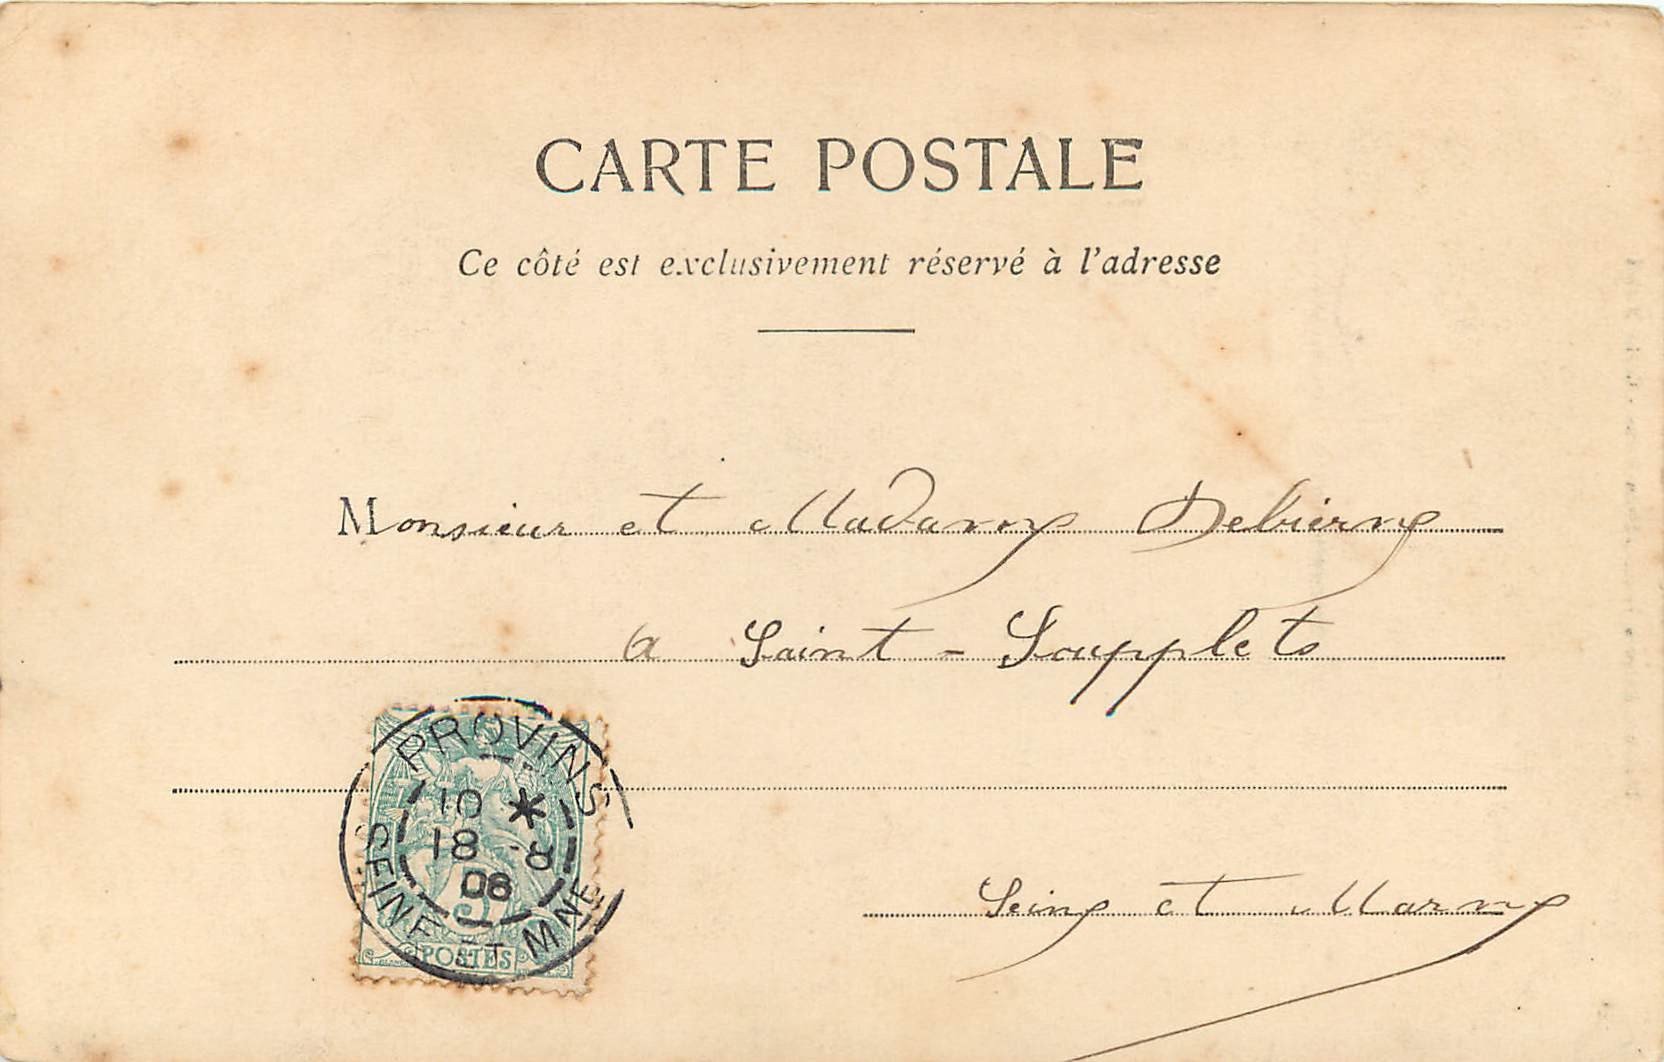 CARTE POSTALE
Ce côté est exclusivement réservé à l'adresse
Monsieur et Madame Debierne
a Saint-Soupplets
PROVINS
10 *
18 -8
06
SEINE ET MNE
5
POSTES
Seine et Marne